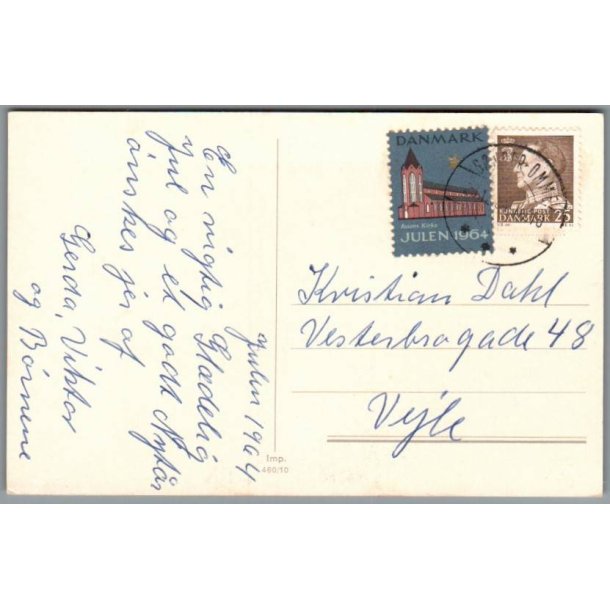 Julen 1964
En rigtig Glædelig
jul og et godt Nytår
ønskes jer af
Gerda, Viktor
og Børnene
DANMARK
Assens Kirke
JULEN 1964
KONGELIG POST
DANMARK 25
SØNDER-OMME
Kristian Dahl
Vesterbrogade 48
Vejle
Imp.
460/10